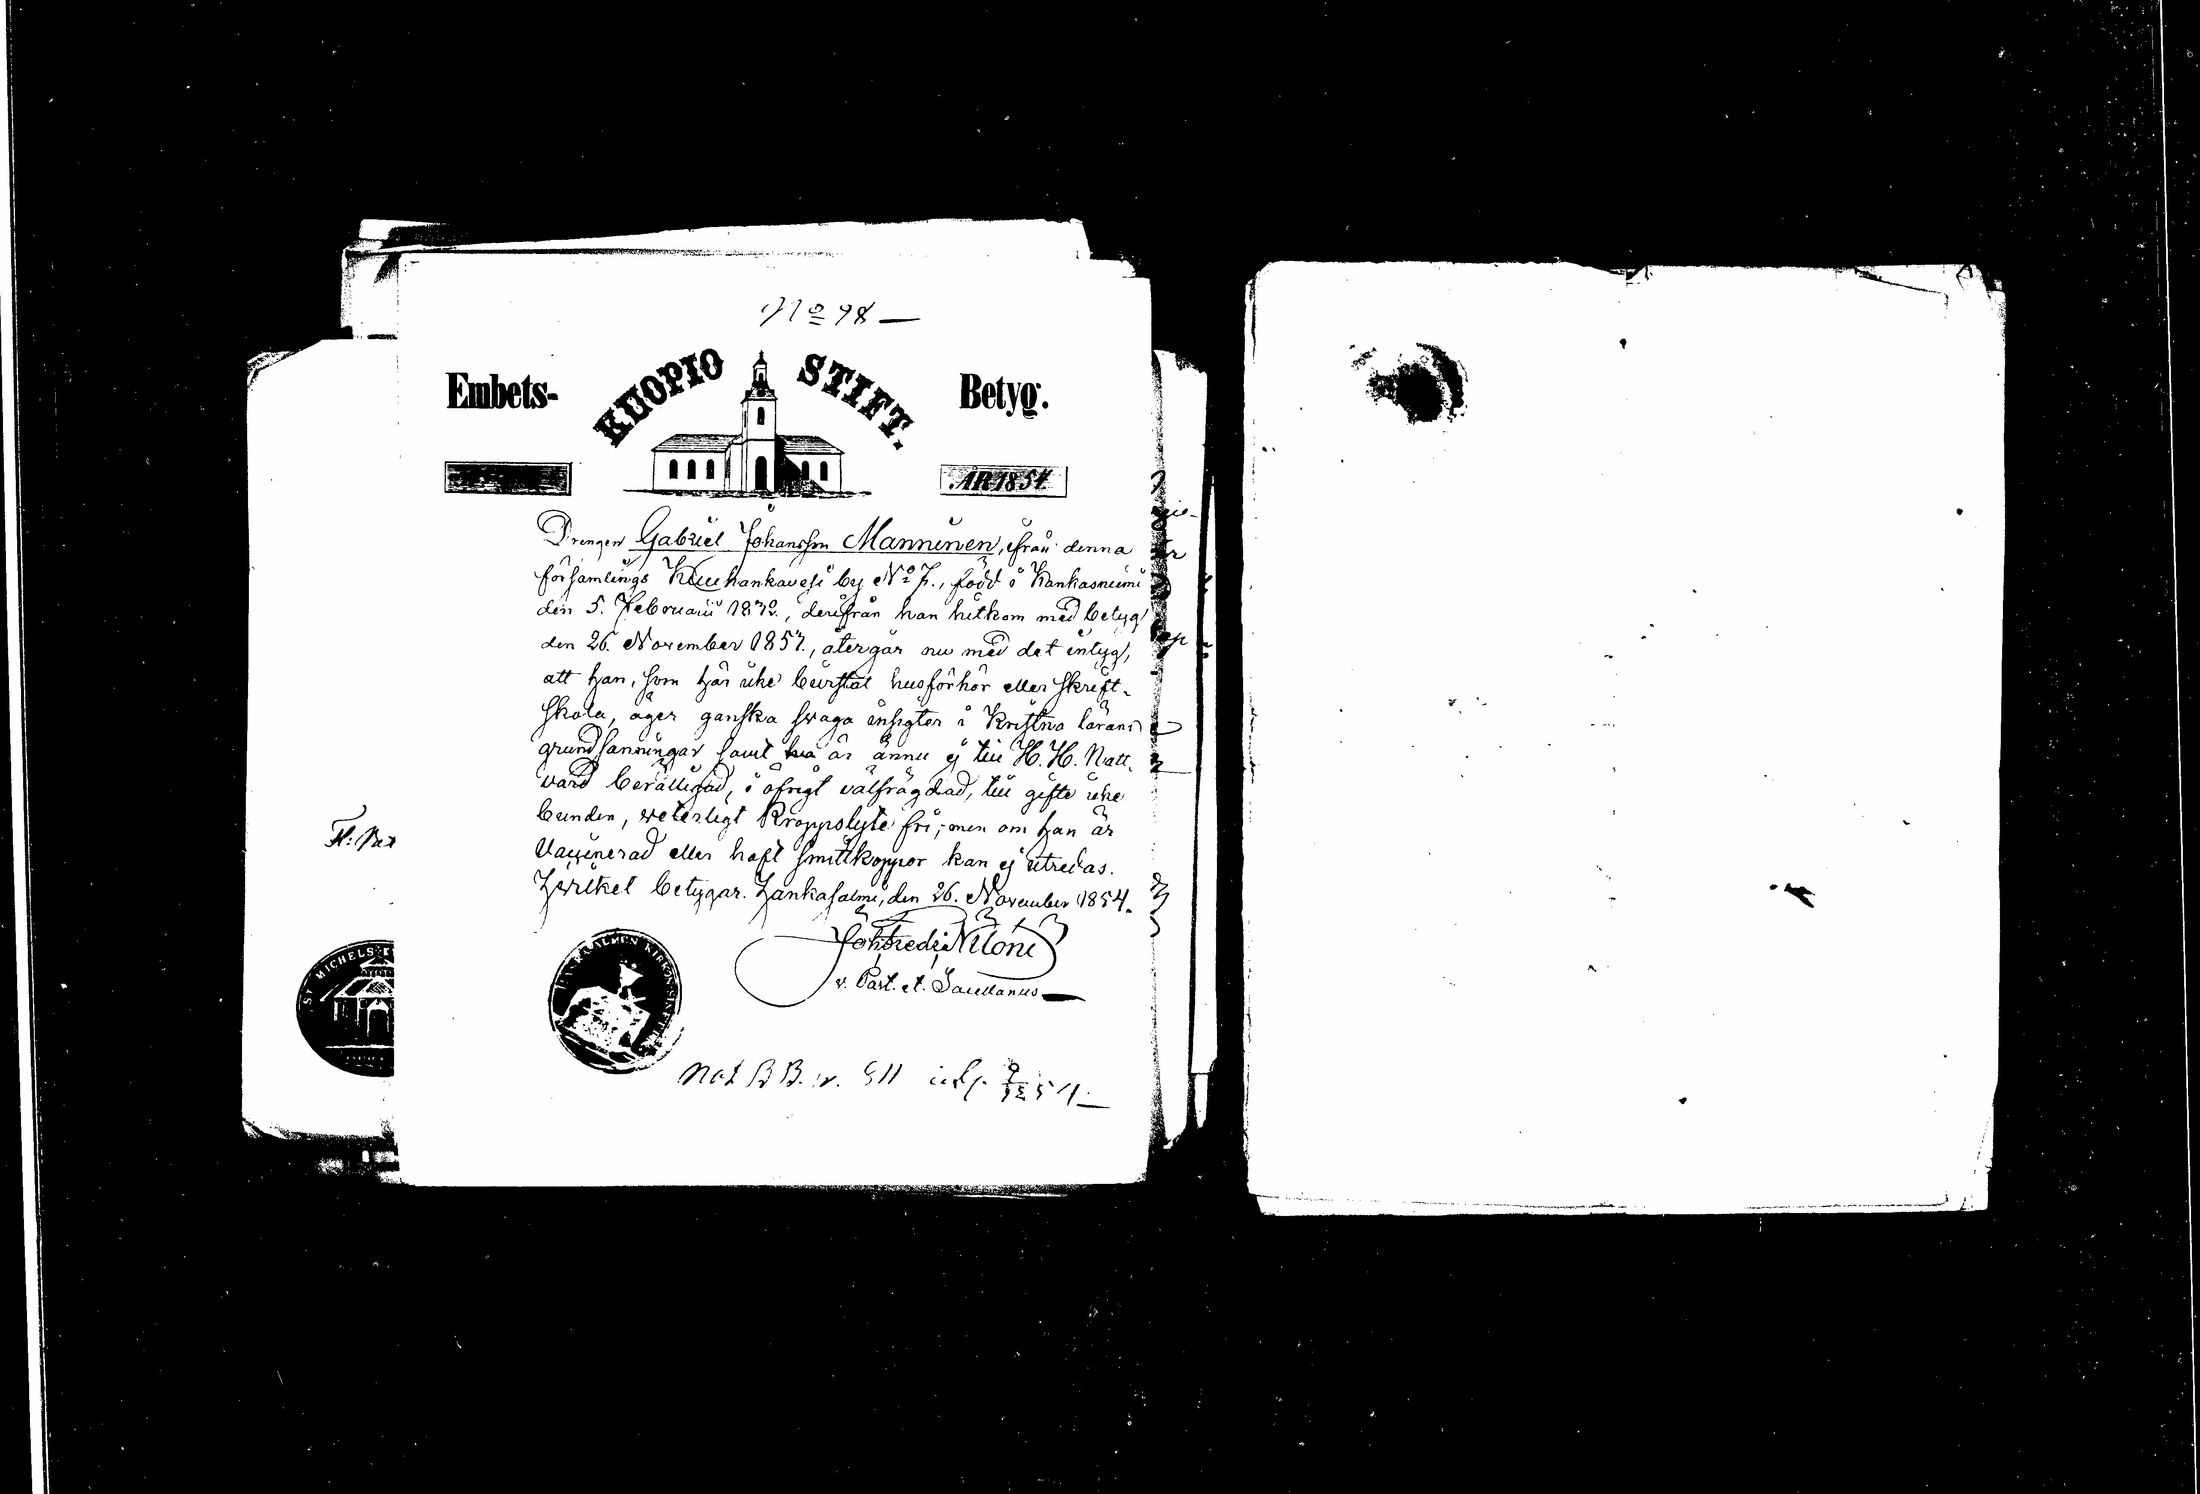 No 98 —
Embets- KUOPIO STIFT. Betyg.
ÅR 1854
Drengen Gabriel Johansson Manninen, ifrån denna
församlings Kuuhankavesi by No 7., född i Kankasniemi
den 5. Februarii, derifrån han hitkom med betyg
den 26. November 1853., återgår nu med det intyg,
att han, som här icke bivistat husförhör eller Skrift-
skola, äger ganska swaga insigter i Kristna lärans
grundsanningar samt är ännu ej till H. H. Natt-
vard berättigad, i öfrigt välfrägdad, till gifte icke
bunden, veterligt Kroppslyte fri, men om han är
Vaccinerad eller haft smittkoppor kan ej utredas.
Hvilket betygar. Hankasalmi, den 26. November 1854.
v. Past. et. Sacellanus
HANKASALMEN KIRKON SINETTI
ST MICHELS